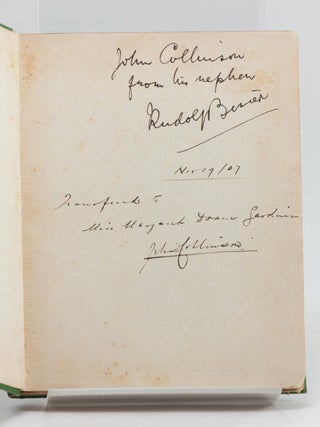 John Collinson
from his nephew
Rudolf Besier
Nov 19/07
Transferred to
Miss Margaret Doane Gardiner
John Collinson